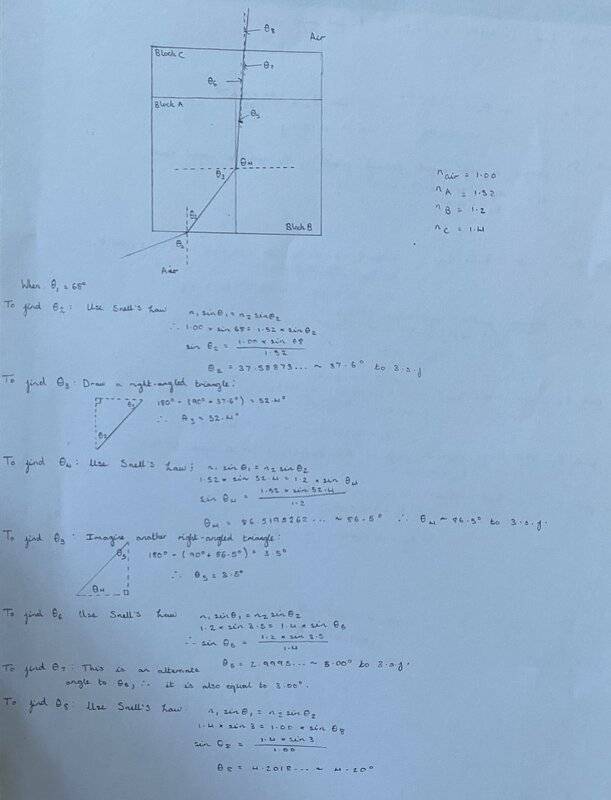 θ₈
Air
Block C
θ₇
θ₆
Block A
θ₅
θ₄
θ₃
θ₂
Block B
θ₁
Air
n air = 1.00
n A = 1.52
n B = 1.2
n C = 1.4
When θ₁ = 68°
To find θ₂: Use Snell's Law n₁ sin θ₁ = n₂ sin θ₂
∴ 1.00 × sin 68 = 1.52 × sin θ₂
sin θ₂ = 1.00 × sin 68 / 1.52
θ₂ = 37.58873... ~ 37.6° to 3.s.f
To find θ₃: Draw a right-angled triangle:
θ₃ 180° - (90° + 37.6°) = 52.4°
θ₂ ∴ θ₃ = 52.4°
To find θ₄: Use Snell's Law; n₁ sin θ₁ = n₂ sin θ₂
1.52 × sin 52.4 = 1.2 × sin θ₄
sin θ₄ = 1.52 × sin 52.4 / 1.2
θ₄ = 86.5198262... ~ 86.5° ∴ θ₄ ~ 86.5° to 3.s.f.
To find θ₅: Imagine another right-angled triangle:
θ₅ 180° - (90° + 86.5°) = 3.5°
θ₄ ∴ θ₅ = 3.5°
To find θ₆ Use Snell's Law n₁ sin θ₁ = n₂ sin θ₂
1.2 × sin 3.5 = 1.4 × sin θ₆
∴ sin θ₆ = 1.2 × sin 3.5 / 1.4
θ₆ = 2.9995... ~ 3.00° to 3.s.f.
To find θ₇: This is an alternate
angle to θ₆, ∴ it is also equal to 3.00°.
To find θ₈: Use Snell's Law: n₁ sin θ₁ = n₂ sin θ₂
1.4 × sin 3 = 1.00 × sin θ₈
sin θ₈ = 1.4 × sin 3 / 1.00
θ₈ = 4.2018... ~ 4.20°